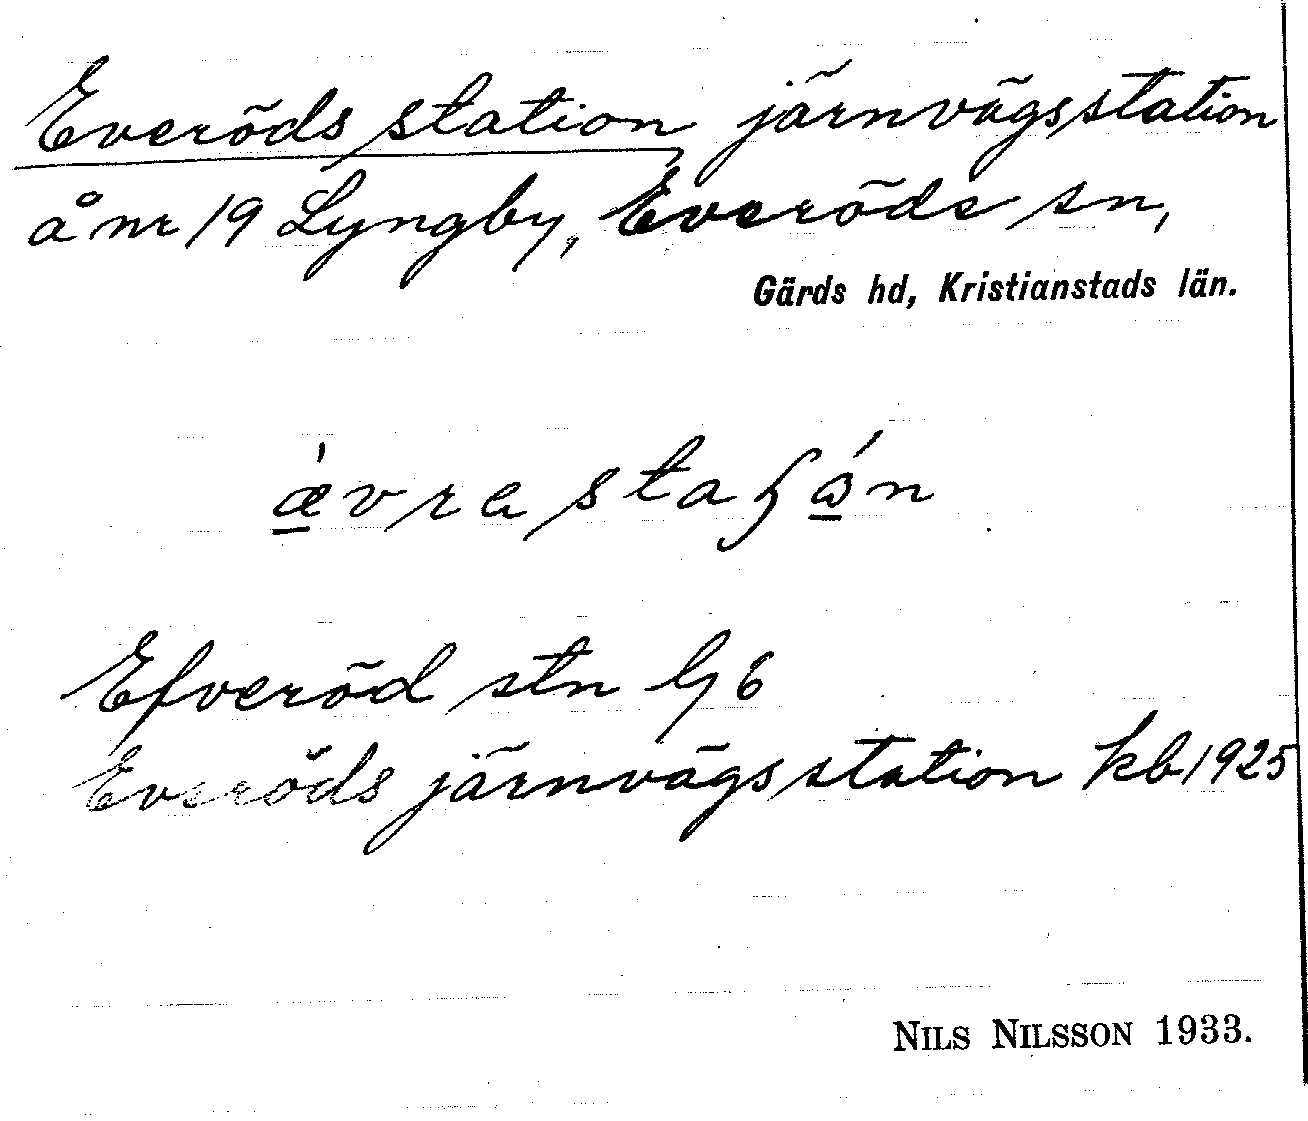 Everöds station järnvägsstation
å nr 19 Lyngby, Everöds sn,
Gärds hd, Kristianstads län.
Efveröd stn
Everöds järnvägsstation kb 1925
NILS NILSSON 1933.